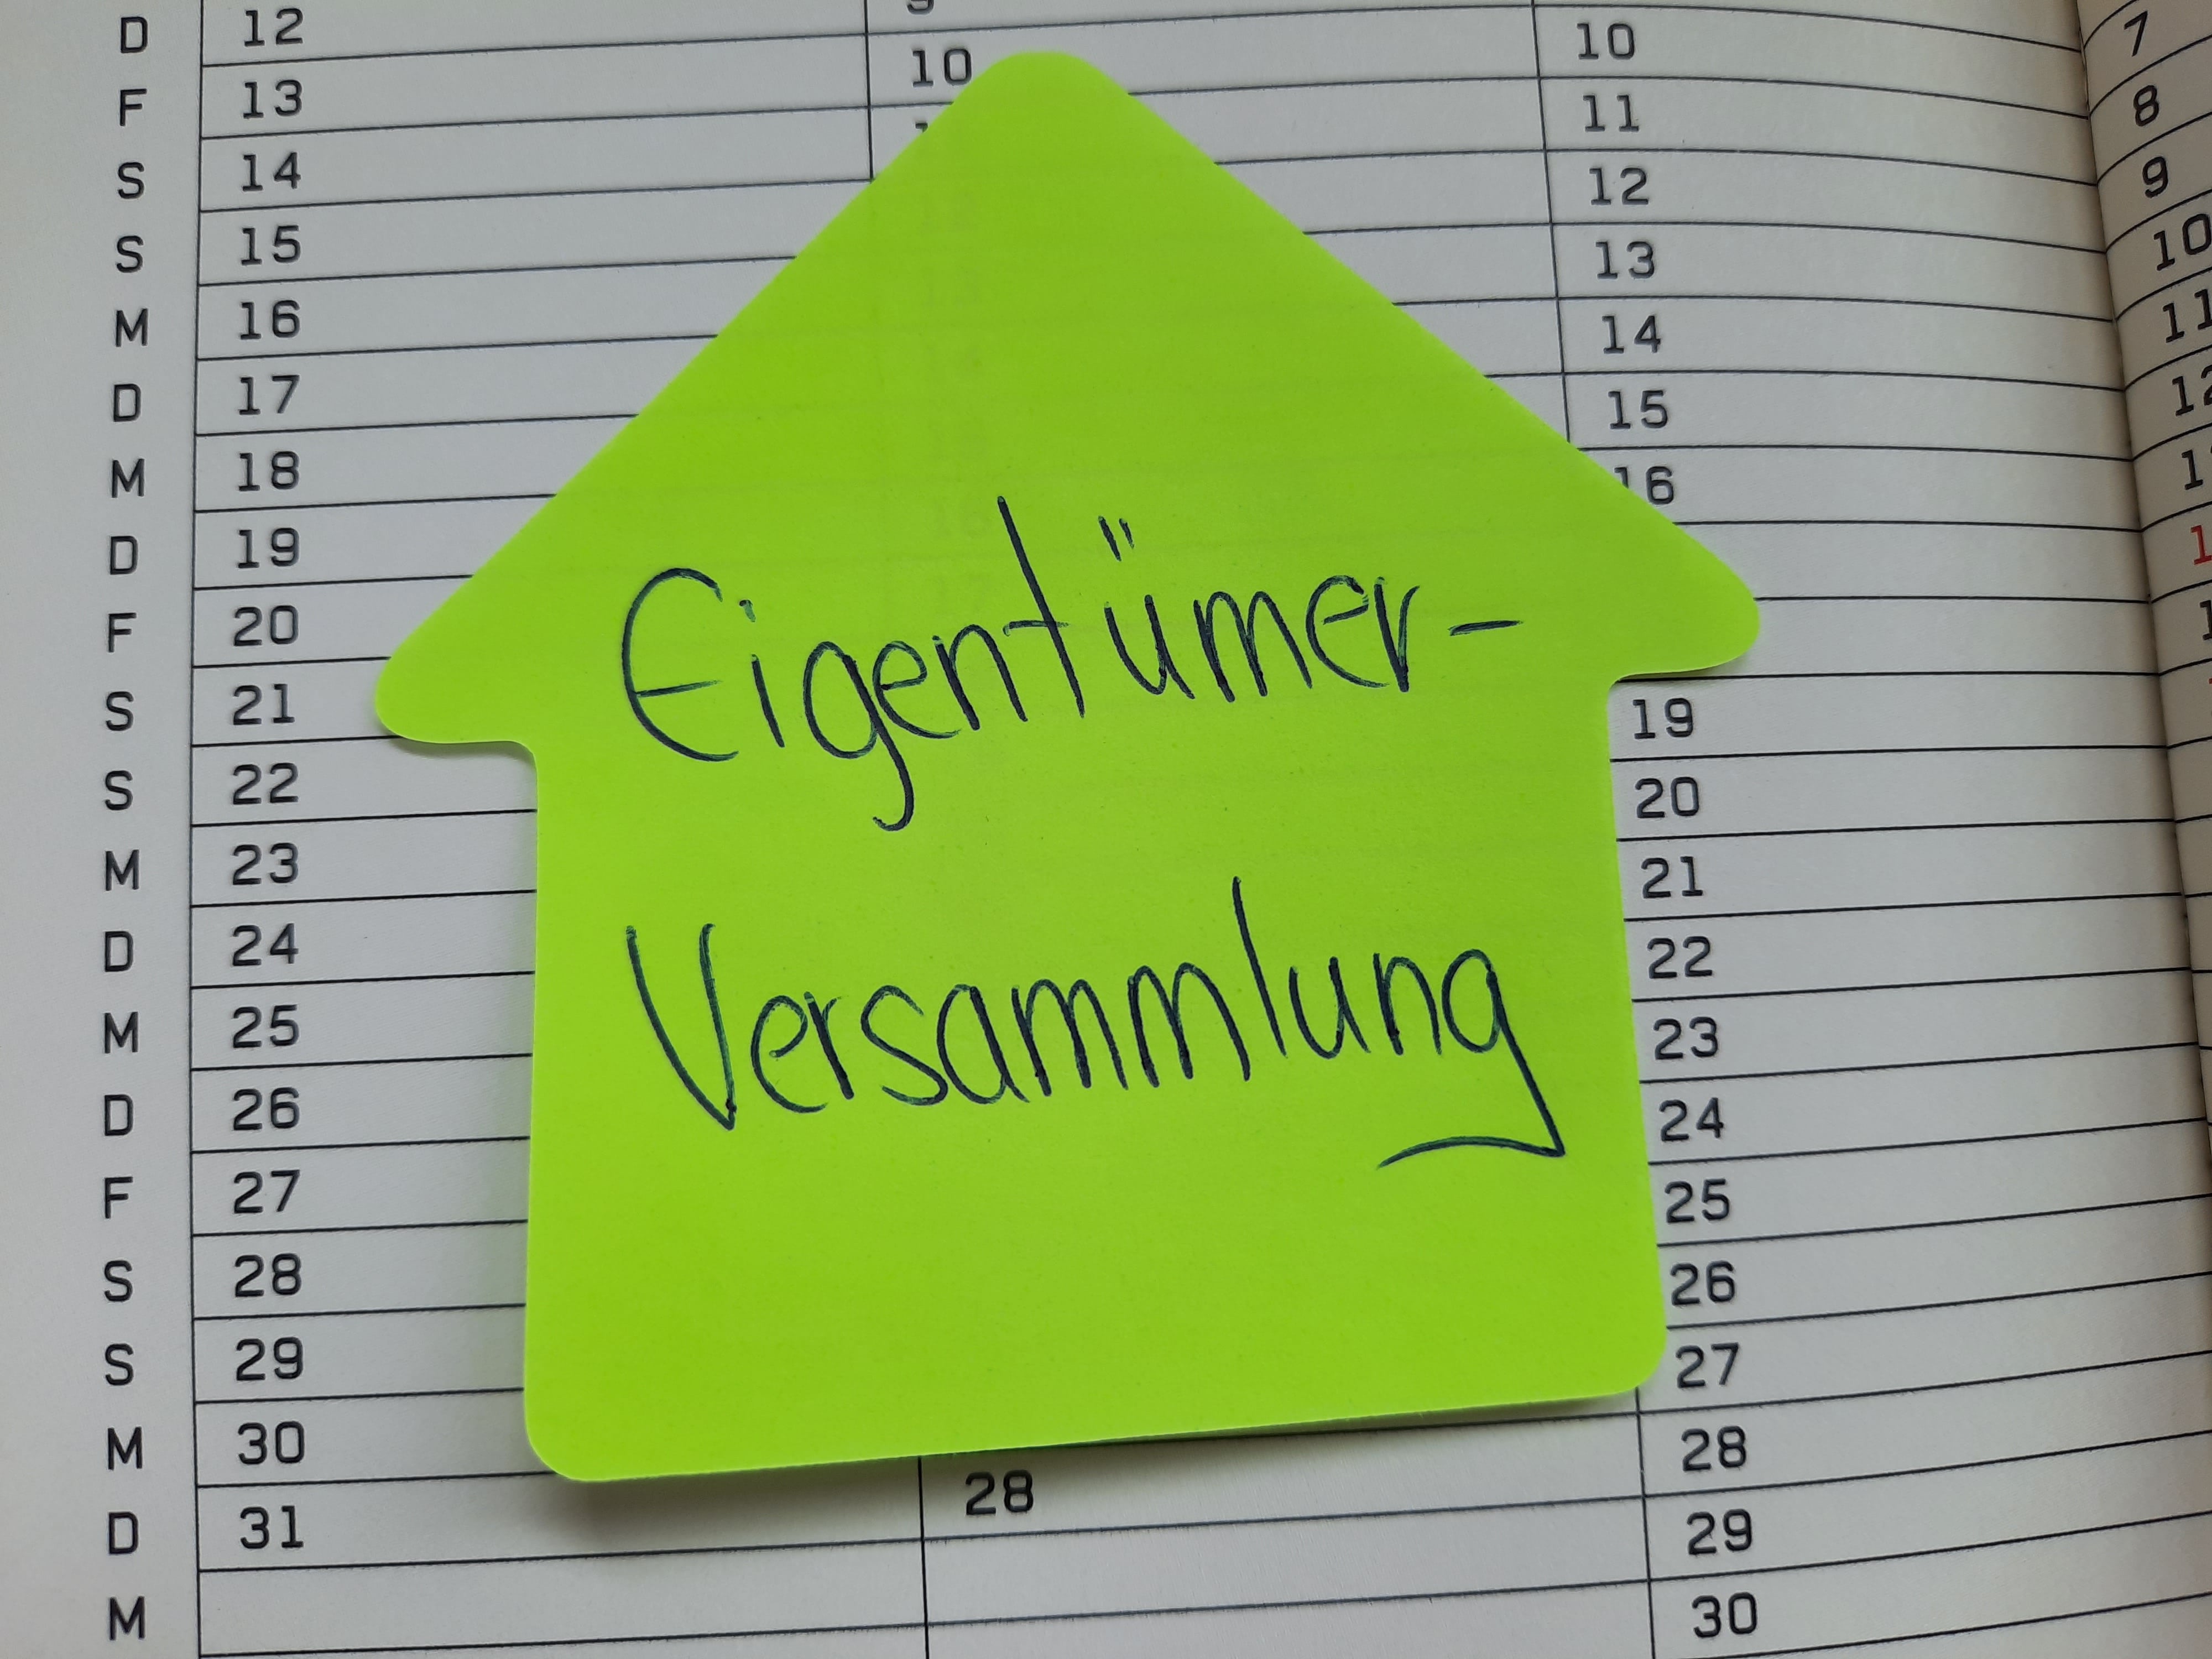 D 12 9 10 7
F 13 10 11 8
S 14 12 9
S 15 13 10
M 16 14 11
D 17 15 12
M 18 16
D 19
F 20
S 21 19
S 22 20
M 23 21
D 24 22
M 25 23
D 26 24
F 27 25
S 28 26
S 29 27
M 30 28
D 31 28 29
M 30
Eigentümer-
Versammlung